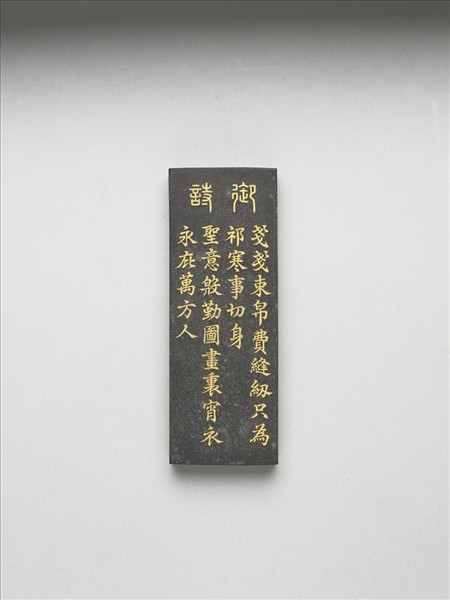 御詩
戔戔束帛費縫紉只為
祁寒事切身
聖意殷勤圖畫裏宵衣
永庇萬方人